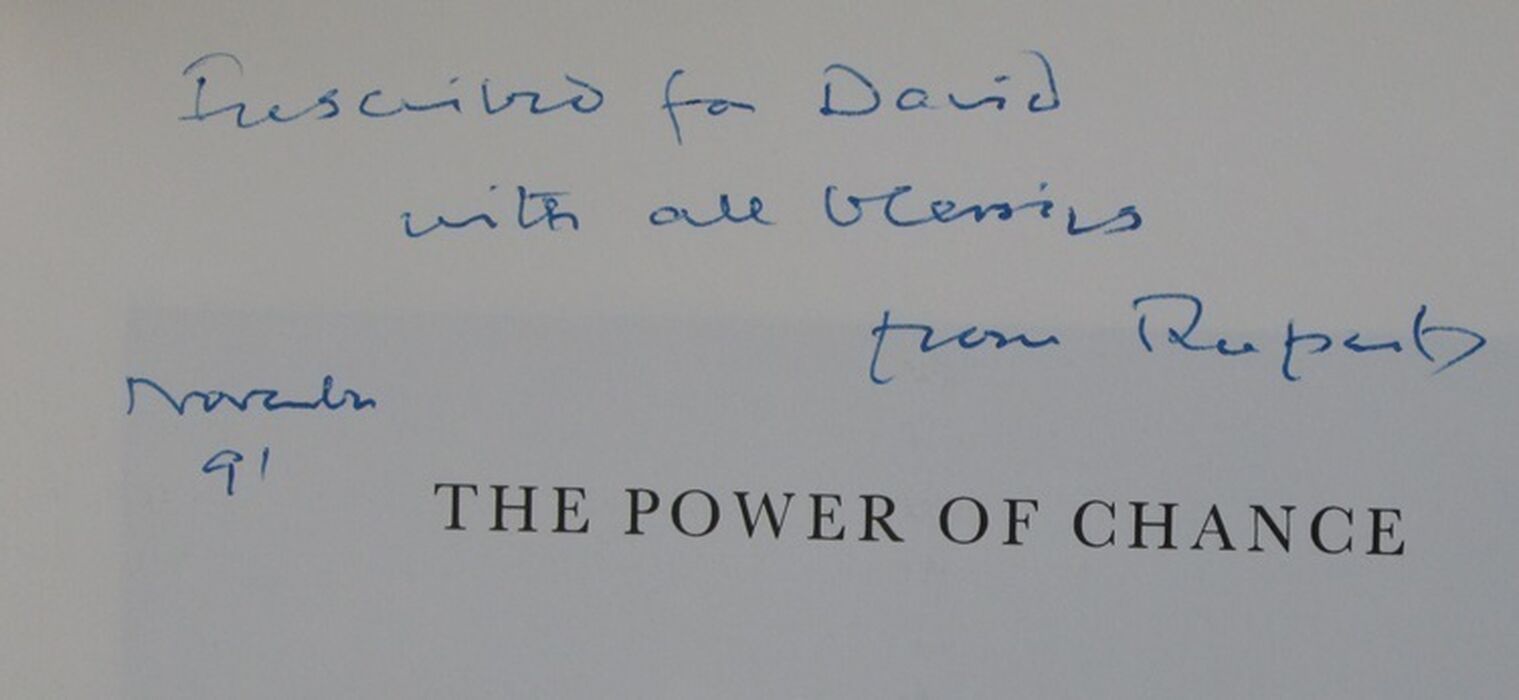 Inscribed for David
with all blessings
from Rupert
November
91
THE POWER OF CHANCE